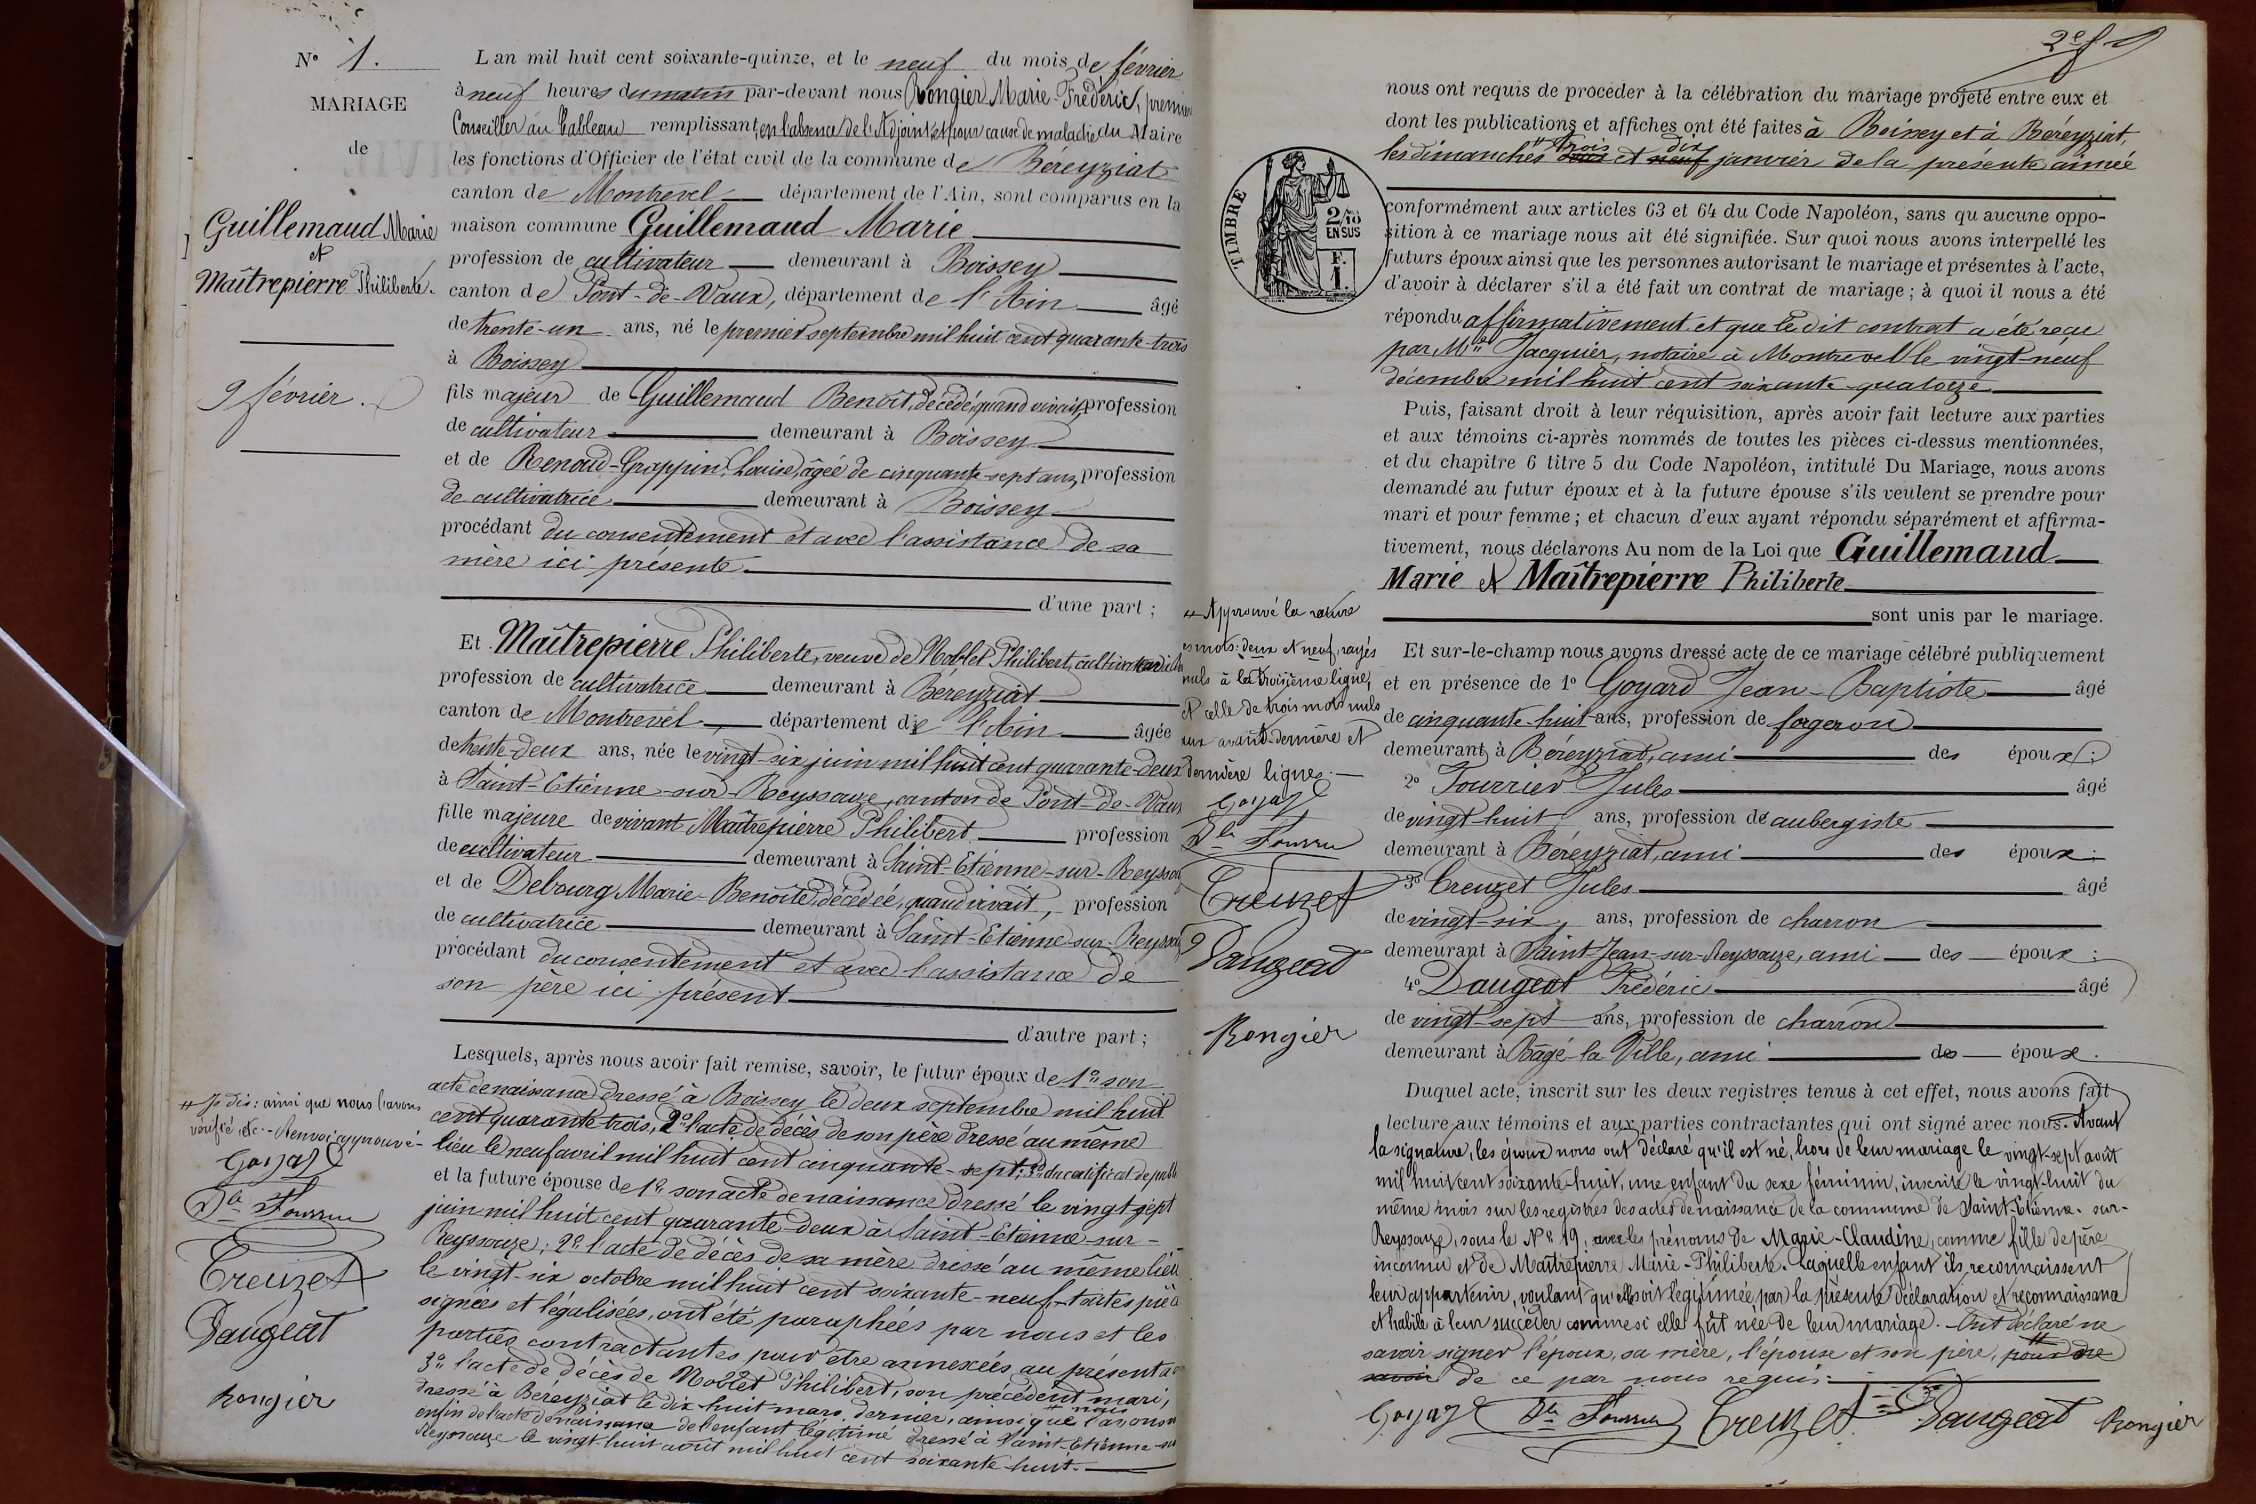 N° 1.
MARIAGE
de
Guillemaud Marie
et
Maîtrepierre Philiberte.
9 février.
L'an mil huit cent soixante-quinze, et le neuf du mois de février
à neuf heures du matin par-devant nous Rongier Marie-Frédéric, premier
Conseiller au Tableau remplissant, en l'absence de l'Adjoint et pour cause de maladie du Maire
les fonctions d'Officier de l'état civil de la commune de Béreyziat
canton de Montrevel département de l'Ain, sont comparus en la
maison commune Guillemaud Marie
profession de cultivateur demeurant à Boissey
canton de Pont-de-Vaux, département de l'Ain âgé
de trente-un ans, né le premier septembre mil huit cent quarante-trois
à Boissey
fils majeur de Guillemaud Benoît, décédé, quand vivait, profession
de cultivateur demeurant à Boissey
et de Renoud-Grappin Louise, âgée de cinquante-sept ans, profession
de cultivatrice demeurant à Boissey
procédant du consentement et avec l'assistance de sa
mère ici présente.
d'une part ;
Et Maîtrepierre Philiberte, veuve de Noblet Philibert, cultivateur
profession de cultivatrice demeurant à Béreyziat
canton de Montrevel, département de l'Ain âgée
de trente-deux ans, née le vingt-six juin mil huit cent quarante-deux
à Saint-Etienne-sur-Reyssouze, canton de Pont-de-Vaux
fille majeure de vivant Maîtrepierre Philibert profession
de cultivateur demeurant à Saint-Etienne-sur-Reyssouze
et de Debourg Marie-Benoîte, décédée, quand vivait, profession
de cultivatrice demeurant à Saint-Etienne-sur-Reyssouze
procédant du consentement et avec l'assistance de
son père ici présent
d'autre part ;
Lesquels, après nous avoir fait remise, savoir, le futur époux de 1° son
acte de naissance dressé à Boissey le deux septembre mil huit
cent quarante-trois, 2° l'acte de décès de son père dressé au même
lieu le neuf avril mil huit cent cinquante-sept; 3° du certificat de publi
et la future épouse de 1° son acte de naissance dressé le vingt-sept
juin mil huit cent quarante-deux à Saint-Etienne-sur-
Reyssouze; 2° l'acte de décès de sa mère dressé au même lieu
le vingt-six octobre mil huit cent soixante-neuf toutes pièces
signées et légalisées, ont été paraphées par nous et les
parties contractantes pour être annexées au présent a
3° l'acte de décès de Noblet Philibert, son précédent mari,
dressé à Béreyziat le dix-huit mars dernier, ainsi que nous l'avons
enfin de l'acte de naissance de l'enfant légitimé dressé à Saint-Etienne-sur
Reyssouze le vingt-huit août mil huit cent soixante-huit.
Je dis: ainsi que nous l'avons
vérifié, etc. - Renvoi approuvé -
Goyard
Treuzet
Daugeat
Rongier
2e f
nous ont requis de procéder à la célébration du mariage projeté entre eux et
dont les publications et affiches ont été faites à Boissey et à Béreyziat,
les dimanches deux trois et neuf dix janvier de la présente année
TIMBRE
2/10
EN SUS
F.
1.
conformément aux articles 63 et 64 du Code Napoléon, sans qu'aucune oppo-
sition à ce mariage nous ait été signifiée. Sur quoi nous avons interpellé les
futurs époux ainsi que les personnes autorisant le mariage et présentes à l'acte,
d'avoir à déclarer s'il a été fait un contrat de mariage ; à quoi il nous a été
répondu affirmativement et que le dit contrat a été reçu
par Me Jacquier, notaire à Montrevel le vingt-neuf
décembre mil huit cent soixante-quatorze
Puis, faisant droit à leur réquisition, après avoir fait lecture aux parties
et aux témoins ci-après nommés de toutes les pièces ci-dessus mentionnées,
et du chapitre 6 titre 5 du Code Napoléon, intitulé Du Mariage, nous avons
demandé au futur époux et à la future épouse s'ils veulent se prendre pour
mari et pour femme ; et chacun d'eux ayant répondu séparément et affirma-
tivement, nous déclarons Au nom de la Loi que Guillemaud
Marie et Maîtrepierre Philiberte
sont unis par le mariage.
Et sur-le-champ nous avons dressé acte de ce mariage célébré publiquement
et en présence de 1° Goyard Jean-Baptiste âgé
de cinquante-huit ans, profession de forgeron
demeurant à Béreyziat, ami des époux ;
2° Fourrier Jules âgé
de vingt-huit ans, profession de aubergiste
demeurant à Béreyziat, ami des époux ;
3° Creuzet Jules âgé
de vingt-six ans, profession de charron
demeurant à Saint-Jean-sur-Reyssouze, ami des époux ;
4° Daugeat Frédéric âgé
de vingt-sept ans, profession de charron
demeurant à Bâgé-la-Ville, ami des époux.
Duquel acte, inscrit sur les deux registres tenus à cet effet, nous avons fait
lecture aux témoins et aux parties contractantes qui ont signé avec nous. Avant
la signature, les époux nous ont déclaré qu'il est né, hors de leur mariage le vingt-sept août
mil huit cent soixante-huit, une enfant du sexe féminin, inscrite le vingt-huit du
même mois sur les registres des actes de naissance de la commune de Saint-Etienne-sur-
Reyssouze, sous le N° 19, avec les prénoms de Marie-Claudine, comme fille de père
inconnu et de Maîtrepierre Marie-Philiberte. Laquelle enfant ils reconnaissent
leur appartenir, voulant qu'elle soit légitimée, par la présente déclaration et reconnaissance
et habile à leur succéder comme si elle fût née de leur mariage. Ont déclaré ne
savoir signer l'époux, sa mère, l'épouse et son père, pour ne
savoir de ce par nous requis
Goyard Creuzet Daugeat Rongier
Approuvé la rature
es mots: deux et neuf, rayés
nuls à la troisième ligne,
et celle de trois mots nuls
aux avant-dernière et
dernière lignes.
Goyard
Creuzet
Daugeat
Rongier